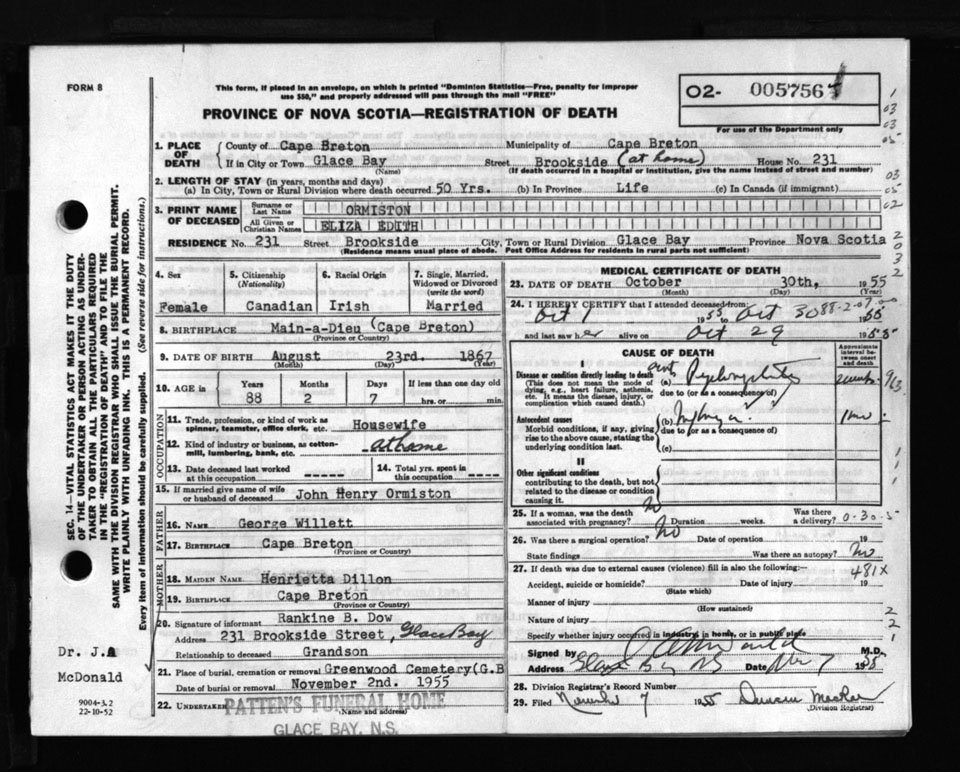 FORM 8
This form, if placed in an envelope, on which is printed "Dominion Statistics—Free, penalty for improper
use $50," and properly addressed will pass through the mail "FREE"
PROVINCE OF NOVA SCOTIA—REGISTRATION OF DEATH
O2- 005756
For use of the Department only
1. PLACE OF DEATH
County of Cape Breton Municipality of Cape Breton
If in City or Town Glace Bay Street Brookside (at home) House No. 231
(Name) (If death occurred in a hospital or institution, give the name instead of street and number)
2. LENGTH OF STAY (in years, months and days)
(a) In City, Town or Rural Division where death occurred 50 Yrs. (b) In Province Life (c) In Canada (if immigrant)
3. PRINT NAME OF DECEASED
Surname or Last Name ORMISTON
All Given or Christian Names ELIZA EDITH
RESIDENCE No. 231 Street Brookside City, Town or Rural Division Glace Bay Province Nova Scotia
(Residence means usual place of abode. Post Office Address for residents in rural parts not sufficient)
4. Sex 5. Citizenship (Nationality) 6. Racial Origin 7. Single, Married, Widowed or Divorced (write the word)
Female Canadian Irish Married
8. BIRTHPLACE Main-a-Dieu (Cape Breton)
(Province or Country)
9. DATE OF BIRTH August 23rd. 1867
(Month) (Day) (Year)
10. AGE in Years Months Days If less than one day old
88 2 7 hrs. or min.
OCCUPATION
11. Trade, profession, or kind of work as spinner, teamster, office clerk, etc. Housewife
12. Kind of industry or business, as cotton-mill, lumbering, bank, etc. at home
13. Date deceased last worked at this occupation ----- 14. Total yrs. spent in this occupation -----
15. If married give name of wife or husband of deceased John Henry Ormiston
FATHER
16. NAME George Willett
17. BIRTHPLACE Cape Breton
(Province or Country)
MOTHER
18. MAIDEN NAME Henrietta Dillon
19. BIRTHPLACE Cape Breton
(Province or Country)
20. Signature of informant Rankine B. Dow
Address 231 Brookside Street, Glace Bay
Relationship to deceased Grandson
21. Place of burial, cremation or removal Greenwood Cemetery(G.B
Date of burial or removal November 2nd. 1955
22. UNDERTAKER PATTEN'S FUNERAL HOME
(Name and address)
GLACE BAY, N.S.
MEDICAL CERTIFICATE OF DEATH
23. DATE OF DEATH October 30th, 1955
(Month) (Day) (Year)
24. I HEREBY CERTIFY that I attended deceased from:
Oct 1 1955 to Oct 30 1955
and last saw her alive on Oct 29 1955
CAUSE OF DEATH
Approximate interval between onset and death
I
Disease or condition directly leading to death (a)
(This does not mean the mode of dying, e.g., heart failure, asthenia, etc. It means the disease, injury, or complication which caused death.)
due to (or as a consequence of)
Antecedent causes (b)
Morbid conditions, if any, giving rise to the above cause, stating the underlying condition last.
due to (or as a consequence of)
(c)
II
Other significant conditions
contributing to the death, but not related to the disease or condition causing it.
25. If a woman, was the death associated with pregnancy? No Duration weeks. Was there a delivery?
26. Was there a surgical operation? No Date of operation 19
State findings Was there an autopsy? No
27. If death was due to external causes (violence) fill in also the following:—
481X
Accident, suicide or homicide? Date of injury 19
(State which)
Manner of injury
(How sustained)
Nature of injury
Specify whether injury occurred in industry, in home, or in public place
Signed by M.D.
Address Glace Bay NS Date Nov 7 1955
28. Division Registrar's Record Number
29. Filed November 7 1955 Duncan MacRae
(Division Registrar)
SEC. 14—VITAL STATISTICS ACT MAKES IT THE DUTY
OF THE UNDERTAKER OR PERSON ACTING AS UNDER-
TAKER TO OBTAIN ALL THE PARTICULARS REQUIRED
IN THE "REGISTRATION OF DEATH" AND TO FILE THE
SAME WITH THE DIVISION REGISTRAR WHO SHALL ISSUE THE BURIAL PERMIT.
WRITE PLAINLY WITH UNFADING INK. THIS IS A PERMANENT RECORD.
Every item of information should be carefully supplied. (See reverse side for instructions.)
Dr. J.A
McDonald
9004-3.2
22-10-52